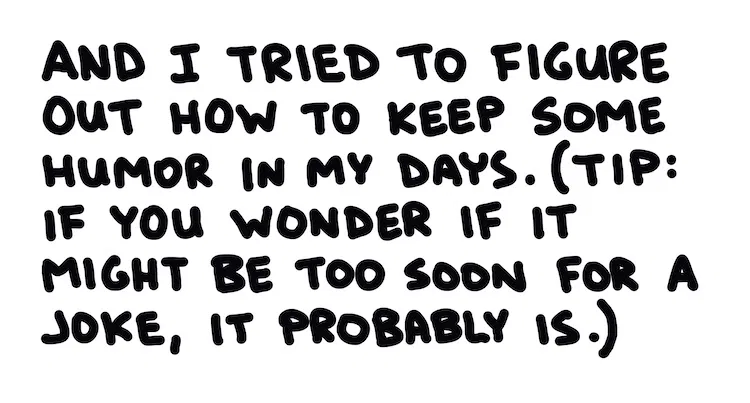 AND I TRIED TO FIGURE
OUT HOW TO KEEP SOME
HUMOR IN MY DAYS. (TIP:
IF YOU WONDER IF IT
MIGHT BE TOO SOON FOR A
JOKE, IT PROBABLY IS.)